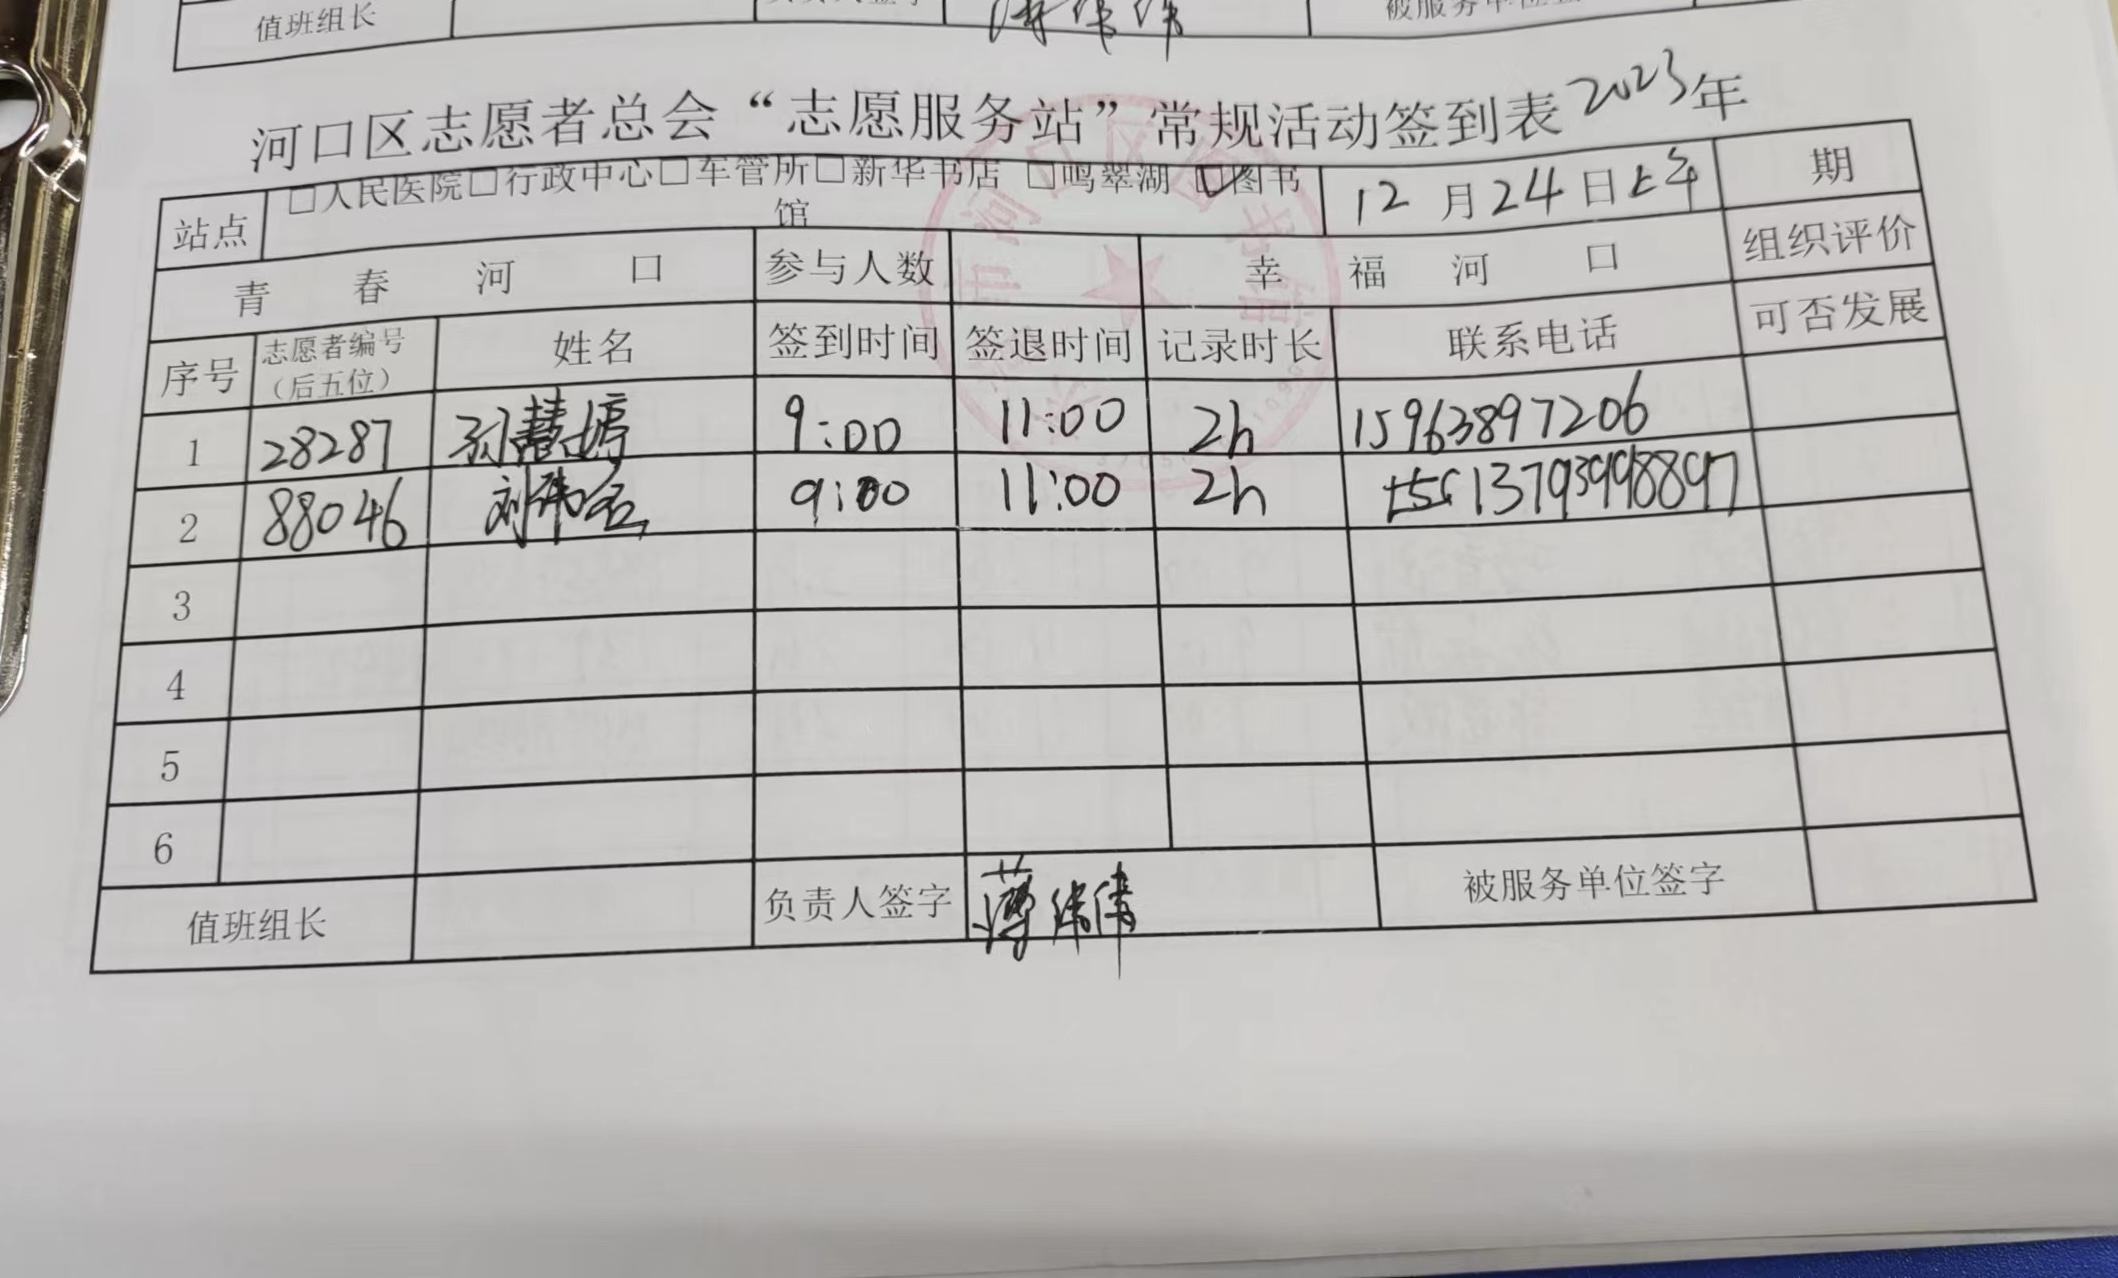 值班组长
河口区志愿者总会“志愿服务站”常规活动签到表 2023年
站点 □人民医院□行政中心□车管所□新华书店 □鸣翠湖 ☑图书馆 12 月 24 日上午 期
青 春 河 口 参与人数 幸 福 河 口 组织评价
序号 志愿者编号（后五位） 姓名 签到时间 签退时间 记录时长 联系电话 可否发展
1 28287 孙慧婷 9:00 11:00 2h 15963897206
2 88046 9:00 11:00 2h 13793998897
3
4
5
6
值班组长 负责人签字 薄伟伟 被服务单位签字